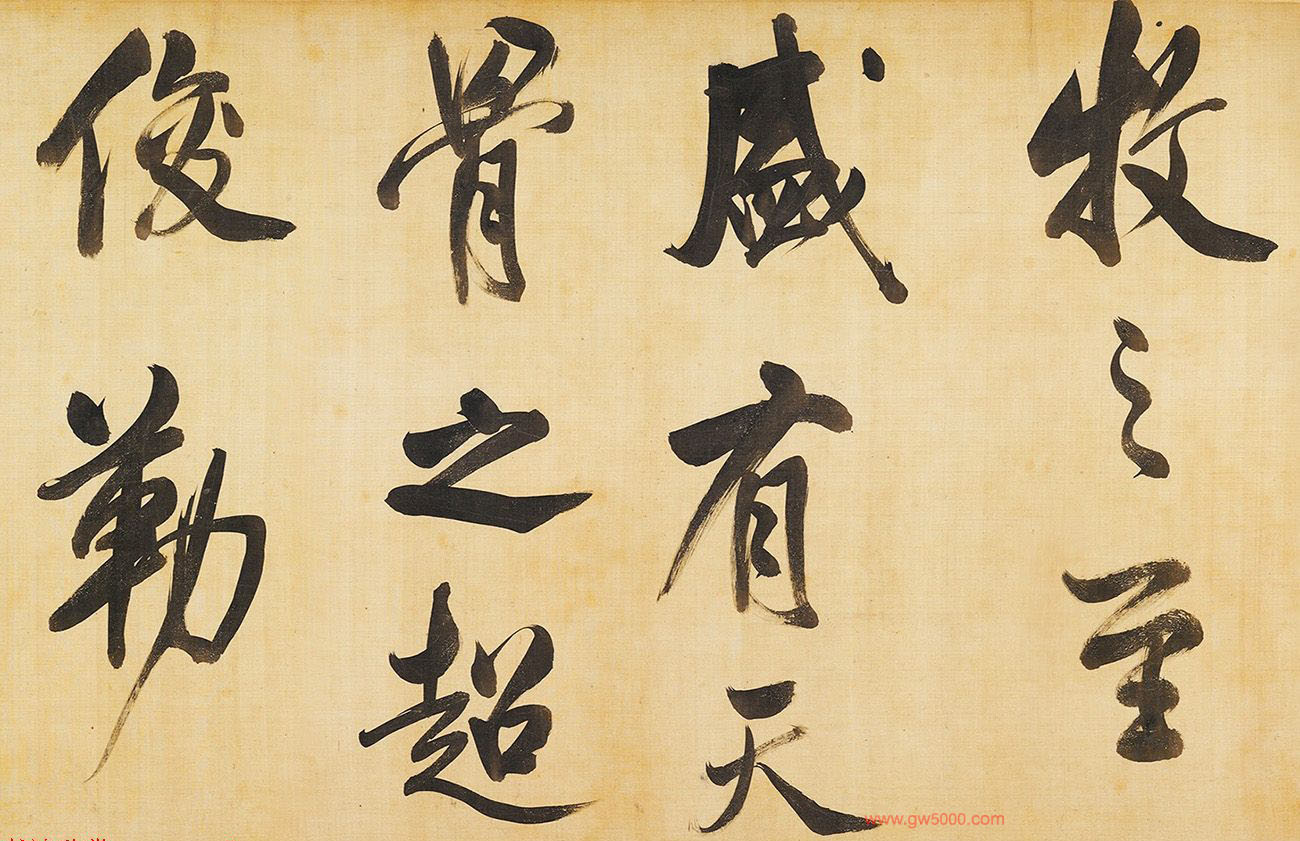 牧之至
盛有天
骨之超
俊勒
www.gw5000.com